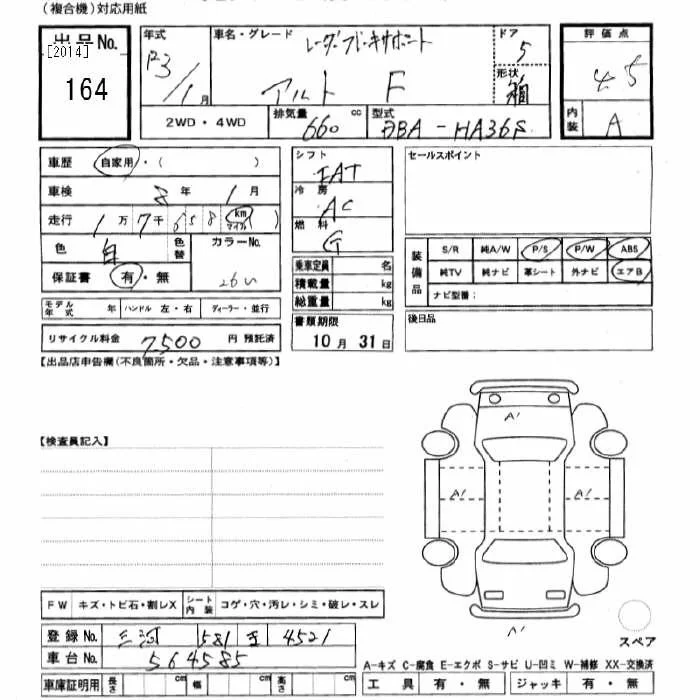 (複合機)対応用紙
出品No. [2014] 164
年式 R3/1月
車名・グレード レーダーブレーキサポート アルト F
ドア 5
形状 箱
評価点 4.5
内装 A
2WD・4WD
排気量 660 cc
型式 DBA-HA36S
車歴 自家用・( )
車検 8年 1月
走行 1万7千658 km マイル )
色 白 色替 カラーNo. 26U
保証書 有・無
モデル年式 年 ハンドル 左・右 ディーラー・並行
リサイクル料金 7500 円 預託済
シフト FAT
冷房 AC
燃料 G
乗車定員 名
積載量 kg
総重量 kg
書類期限
10月 31日
セールスポイント
装備品 S/R 純A/W P/S P/W ABS
純TV 純ナビ 革シート 外ナビ エアB
ナビ型番:
後日品
【出品店申告欄(不良箇所・欠品・注意事項等)】
【検査員記入】
A1
A1 A1
A1
スペア
FW キズ・トビ石・割レX シート内装 コゲ・穴・汚レ・シミ・破レ・スレ
登録No. 三河 581 4521
車台No. 564585
車庫証明用 長さ cm 幅 cm 高さ cm
A-キズ C-腐食 E-エクボ S-サビ U-凹ミ W-補修 XX-交換済
工具 有・無 ジャッキ 有・無